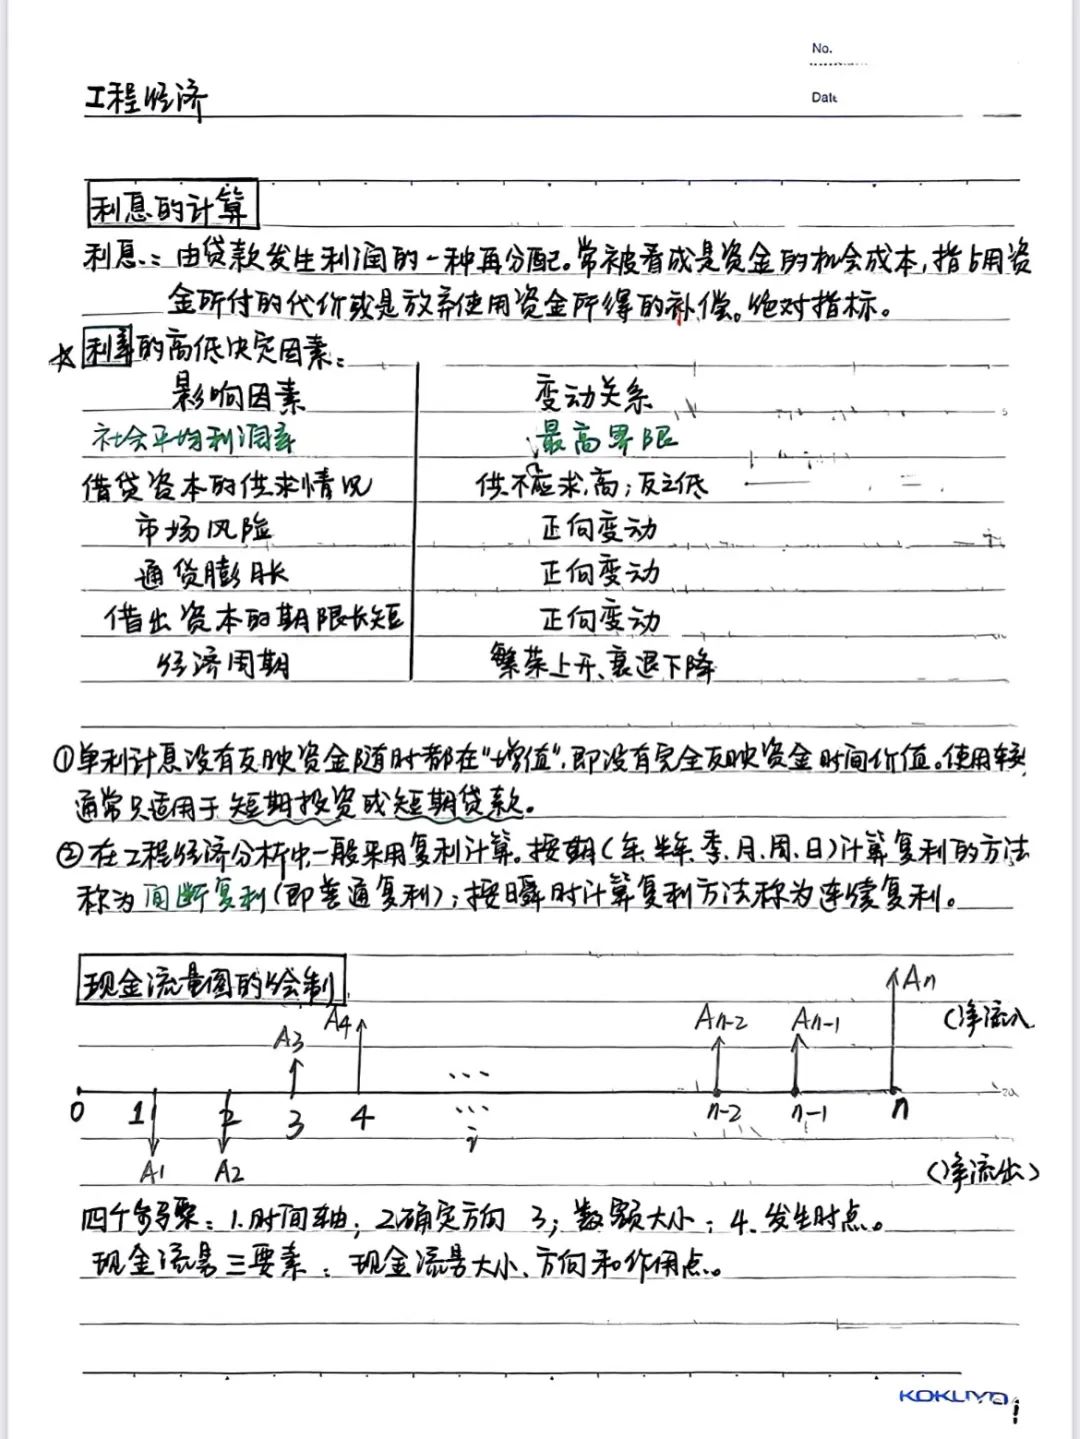 No.
Date
工程经济
利息的计算
利息：由贷款发生利润的一种再分配。常被看成是资金的机会成本，指占用资
金所付的代价或是放弃使用资金所得的补偿。绝对指标。
☆利率的高低决定因素：
影响因素 变动关系
社会平均利润率 最高界限
借贷资本的供求情况 供不应求，高；反之低
市场风险 正向变动
通货膨胀 正向变动
借出资本的期限长短 正向变动
经济周期 繁荣上升、衰退下降
①单利计息没有反映资金随时都在"增值"，即没有完全反映资金时间价值。使用较
通常只适用于短期投资或短期贷款。
②在工程经济分析中一般采用复利计算。按期（年、半年、季、月、周、日）计算复利的方法
称为间断复利（即普通复利）；按瞬时计算复利方法称为连续复利。
现金流量图的绘制
An
A4 An-2 An-1 （净流入
A3
...
0 1 2 3 4 ... n-2 n-1 n
i
A1 A2 （净流出）
四个参数：1.时间轴；2.确定方向 3；数额大小；4.发生时点。
现金流量三要素：现金流量大小、方向和作用点。
KOKUYO
1